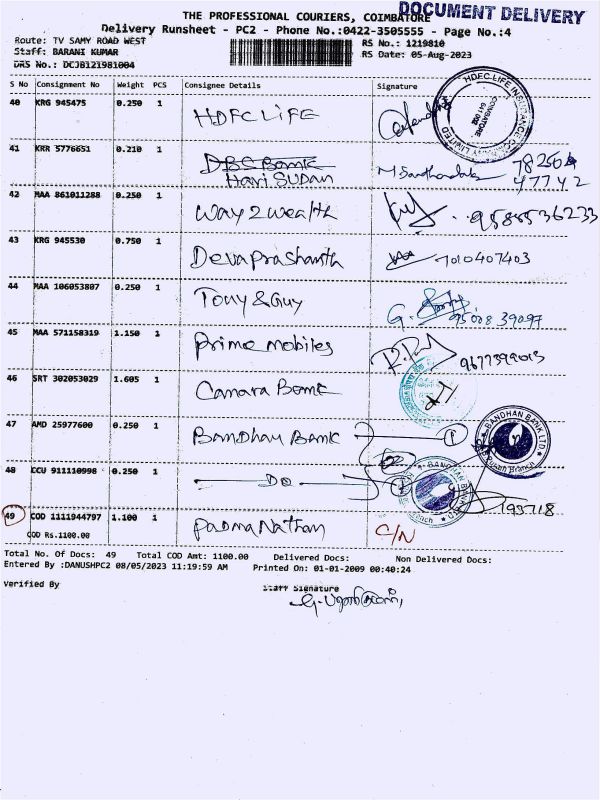 DOCUMENT DELIVERY
THE PROFESSIONAL COURIERS, COIMBATORE
Delivery Runsheet - PC2 - Phone No.:0422-3505555 - Page No.:4
Route: TV SAMY ROAD WEST RS No.: 1219810
Staff: BARANI KUMAR RS Date: 05-Aug-2023
DRS No.: DCJB121981004
S No Consignment No Weight PCS Consignee Details Signature
40 KRG 945475 0.250 1 HDFC LIFE
HDFC LIFE INSURANCE COMPANY LIMITED COIMBATORE 641 002
41 KRR 5776651 0.210 1 DBS Bank
Hari SUDAN 78250
47742
42 MAA 861011288 0.250 1 Way 2 Wealth 9585536233
43 KRG 945530 0.750 1 Devaprashanth 7010407403
44 MAA 106053807 0.250 1 Tony & Guy 95008 39097
45 MAA 571158319 1.150 1 Prime mobiles 9677399013
46 SRT 302053029 1.605 1 Canara Bank
47 AMD 25977600 0.250 1 Bandhan Bank 1
BANDHAN BANK LTD Branch
48 CCU 911110998 0.250 1 DO
BANDHAN BANK 195718
49 COD 1111944797 1.100 1 Padma Nathan C/N
COD Rs.1100.00
Total No. Of Docs: 49 Total COD Amt: 1100.00 Delivered Docs: Non Delivered Docs:
Entered By :DANUSHPC2 08/05/2023 11:19:59 AM Printed On: 01-01-2009 00:40:24
Verified By Staff Signature